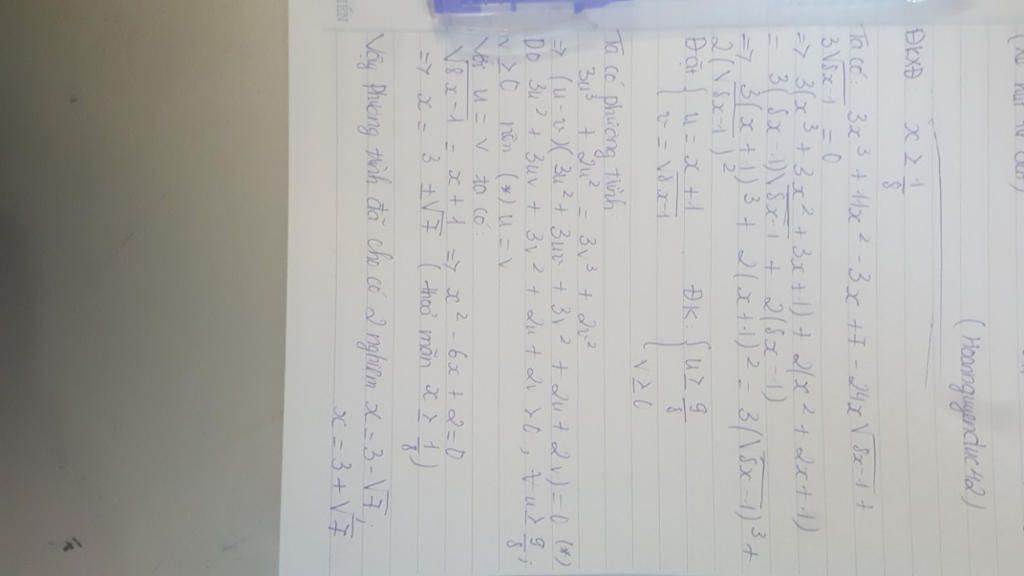 (Hoangnguyenduc42)
ĐKXĐ x ≥ 1/8
Ta có: 3x³ + 11x² - 3x + 7 - 24x√8x-1 +
3√8x-1 = 0
=> 3(x³ + 3x² + 3x+1) + 2(x² + 2x+1)
= 3(8x-1)√8x-1 + 2(8x-1)
=> 3(x+1)³ + 2(x+1)² = 3(√8x-1)³ +
2(√8x-1)²
Đặt { u = x+1 ĐK: { u ≥ 9/8
v = √8x-1 v ≥ 0
Ta có phương trình:
3u³ + 2u² = 3v³ + 2v²
=> (u-v)(3u² + 3uv + 3v² + 2u + 2v) = 0 (*)
Do 3u² + 3uv + 3v² + 2u + 2v > 0, ∀ u ≥ 9/8;
v ≥ 0 nên (*) u = v
Với u = v ta có:
√8x-1 = x+1 => x² - 6x + 2 = 0
=> x = 3 ± √7 (thoả mãn x ≥ 1/8)
Vậy phương trình đã chi có 2 nghiệm x = 3-√7;
x = 3+√7